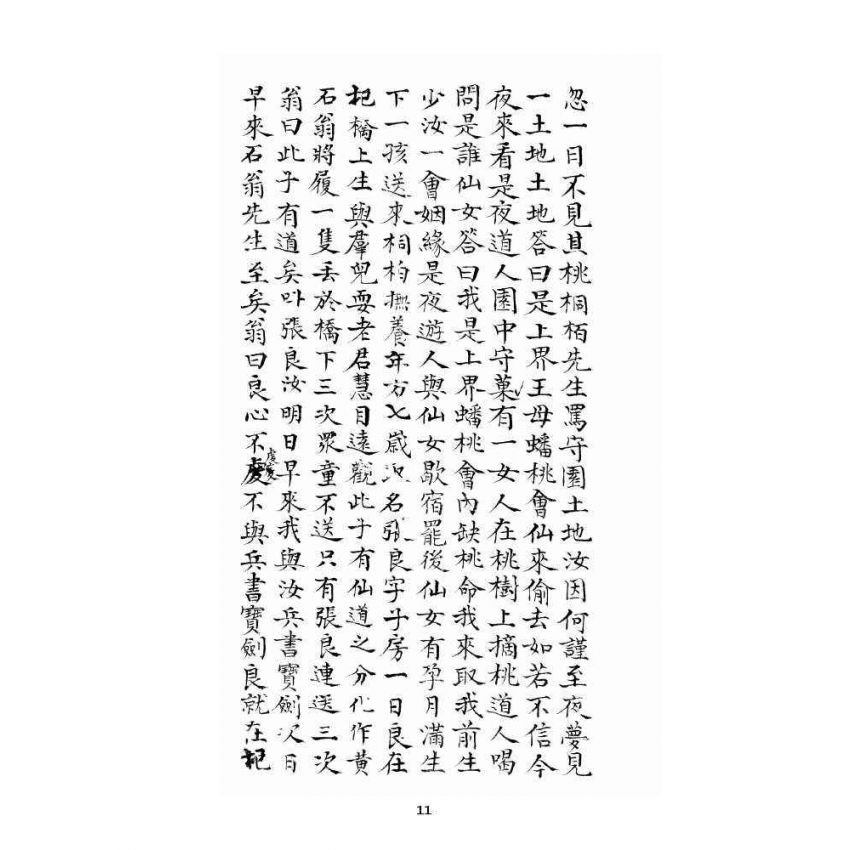 忽一日不見其桃桐栢先生罵守園土地汝因何謹至夜夢見
一土地土地答曰是上界王母蟠桃會仙來偷去如若不信今
夜來看是夜道人園中守菓有一女人在桃樹上摘桃道人喝
問是誰仙女答曰我是上界蟠桃會內缺桃命我來取我前生
少汝一會姻緣是夜遊人與仙女歇宿罷後仙女有孕月滿生
下一孩送來桐柏撫養年方七歲取名張良字子房一日良在
圯橋上生與羣兒耍老君慧目遠觀此子有仙道之分化作黃
石翁將履一隻丢於橋下三次眾童不送只有張良連送三次
翁曰此子有道矣叫張良汝明日早來我與汝兵書寶劍次日
早來石翁先生至矣翁曰良心不虔不與兵書寶劍良就在圯
11